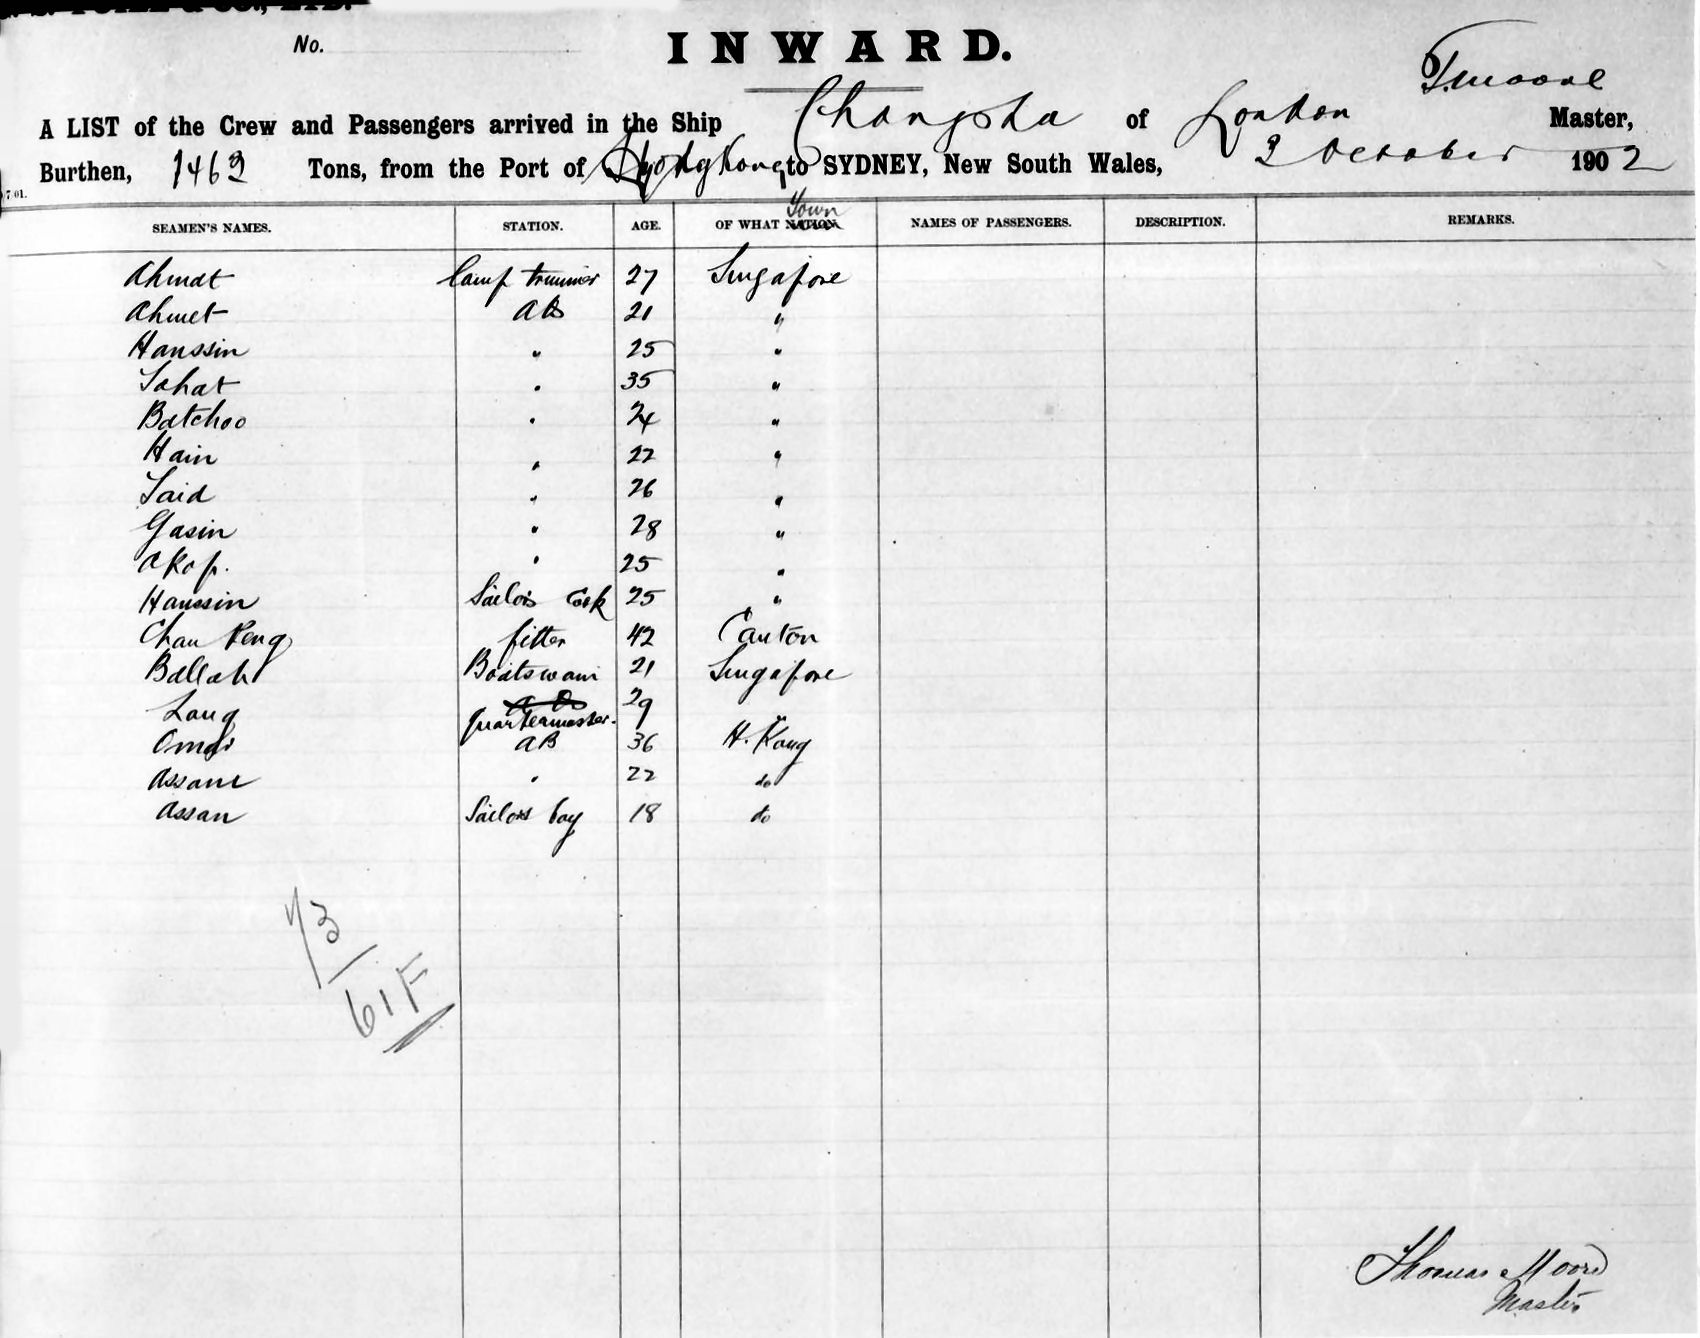 No.
INWARD.
T. Moore
A LIST of the Crew and Passengers arrived in the Ship Changsha of London Master,
Burthen, 1463 Tons, from the Port of Hong Kong to SYDNEY, New South Wales, 2 October 1902
Town
SEAMEN'S NAMES. STATION. AGE. OF WHAT NATION. NAMES OF PASSENGERS. DESCRIPTION. REMARKS.
Ahmat lamp trimmer 27 Singapore
Ahmet AB 21 "
Hanssin " 25 "
Sahat " 35 "
Batchoo " 24 "
Hain " 22 "
Said " 26 "
Gasin " 28 "
Akop. " 25 "
Hanssin Sailors Cook 25 "
Chan Peng fitter 42 Canton
Ballah Boatswain 21 Singapore
Lang quartermaster. 29
Omar AB 36 H. Kong
Assam " 22 do
Assan Sailors boy 18 do
73
61F
Thomas Moore
Master